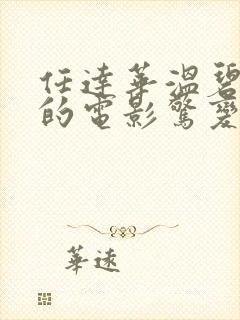 任達華溫碧
的電影驚變
華速